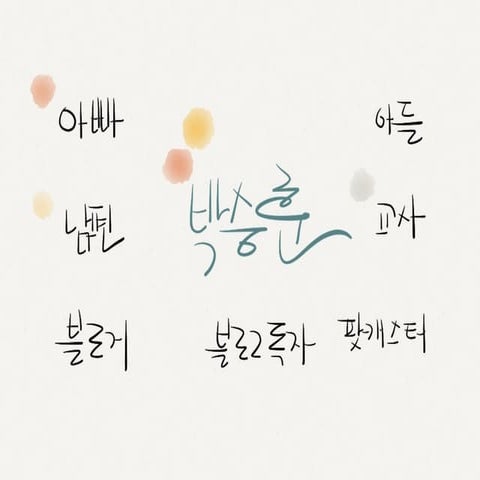 아빠
아들
박승훈
남편
교사
블로거
블로그독자
팟캐스터